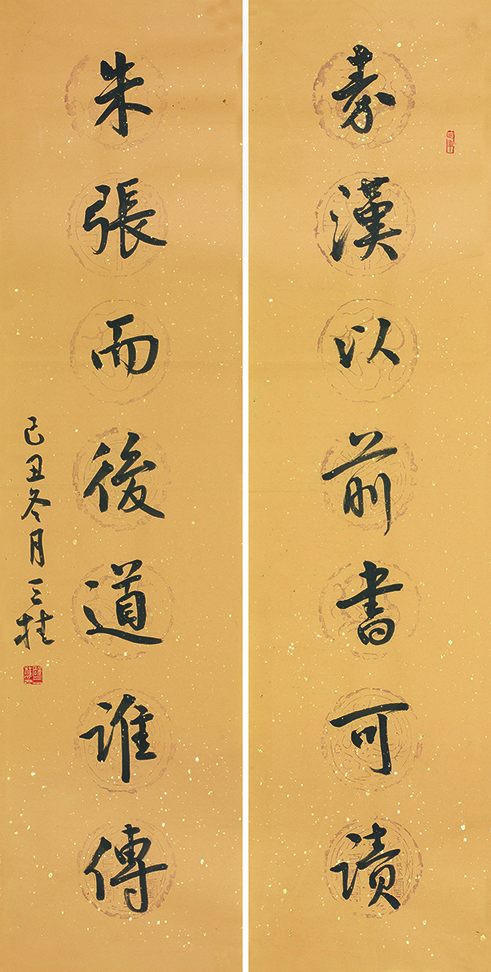 秦漢以前書可讀
朱張而後道誰傳
己丑冬月三